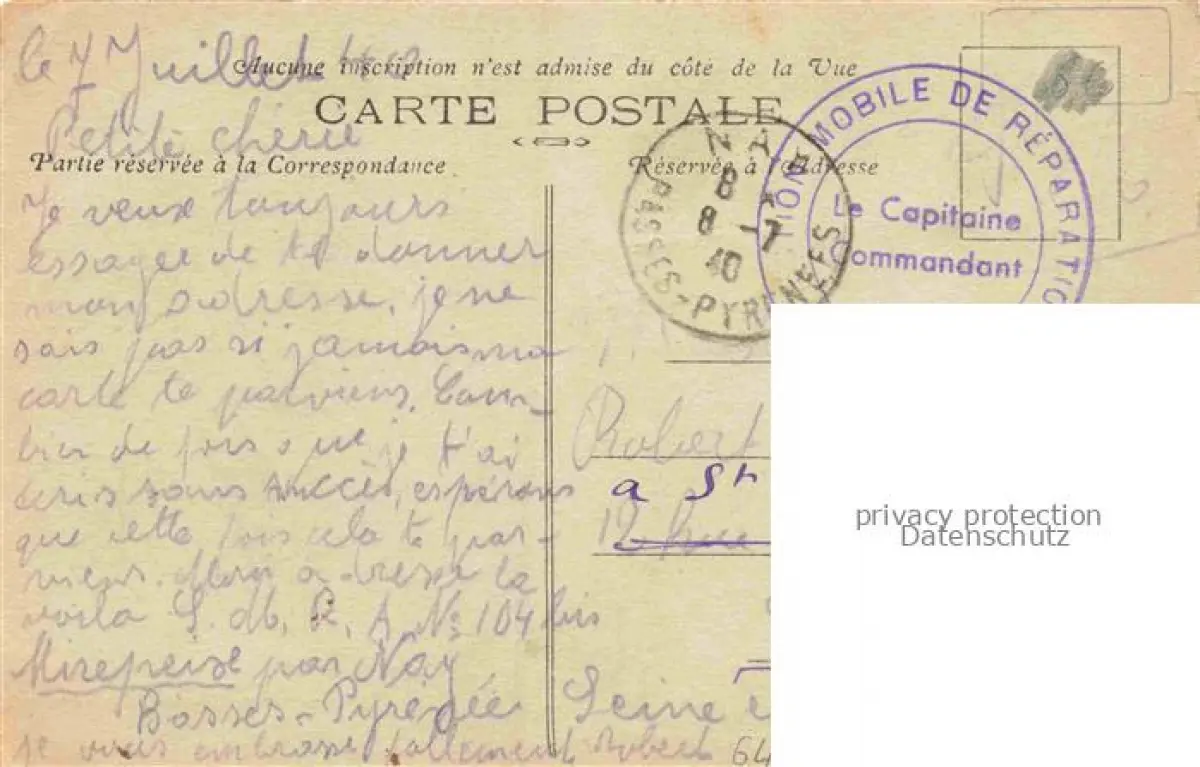 le 7 Juillet 1940
Aucune inscription n'est admise du côté de la Vue
CARTE POSTALE
Petite chérie
Partie réservée à la Correspondance
Réservée à l'Adresse
Je veux toujours
essayer de te donner
mon adresse, je ne
sais pas si jamais ma
carte te parviens. Com-
bien de fois que je t'ai
écris sans succès, espérons
que cette fois cela te par-
viens. Mon adresse la
voila S. M. R. A. No 104 bis
Mirepeise par Nay
Basses-Pyrénées
je vous embrasse follement Robert
NAY
8
8 -7
40
BASSES-PYRENEES
TION MOBILE DE RÉPARATIO
Le Capitaine
Commandant
Robert
a St
12 Rue
Seine
64
privacy protection
Datenschutz